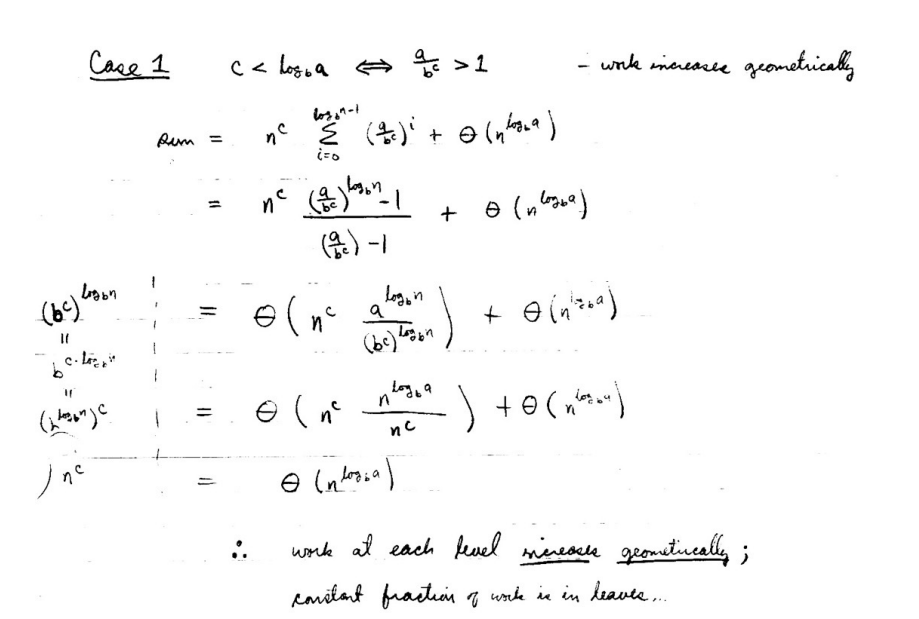 Case 1 c < log_b a ⟺ a/b^c > 1 – work increases geometrically
sum = n^c Σ_{i=0}^{log_b n-1} (a/b^c)^i + Θ(n^{log_b a})
= n^c ((a/b^c)^{log_b n} - 1)/((a/b^c) - 1) + Θ(n^{log_b a})
(b^c)^{log_b n} = Θ(n^c a^{log_b n}/(b^c)^{log_b n}) + Θ(n^{log_b a})
=
b^{c·log_b n}
=
(b^{log_b n})^c = Θ(n^c n^{log_b a}/n^c) + Θ(n^{log_b a})
n^c = Θ(n^{log_b a})
∴ work at each level increases geometrically;
constant fraction of work is in leaves...